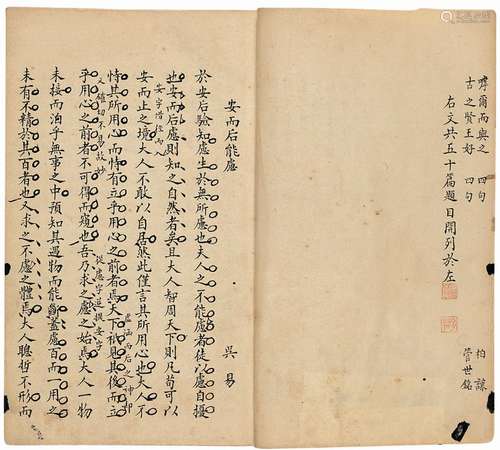 蹴爾而與之 四句 柏謙
古之賢王好 四句 管世銘
右文共五十篇題目開列於左
安而后能慮
吳易
於安后驗知慮生於無所慮也夫人之不能慮者徒以慮自擾
也安而后慮則知之自然者矣且大人智周天下則凡苟可以
安而止之境大人不敢以自居然此僅言其所用心也大人不
恃其所用心而恃有立乎用心之前者焉天下祇見其後而立
乎用心之前者不可得而窺也吾乃求之慮之始焉大人一物
未接而泊乎無事之中預知其遇物而能斷蓋慮百而一用之
未有不精於其百者也又求之不慮之體焉大人聰哲不形而
安字借徑而入
又確切不易故妙
從慮字逆提安字